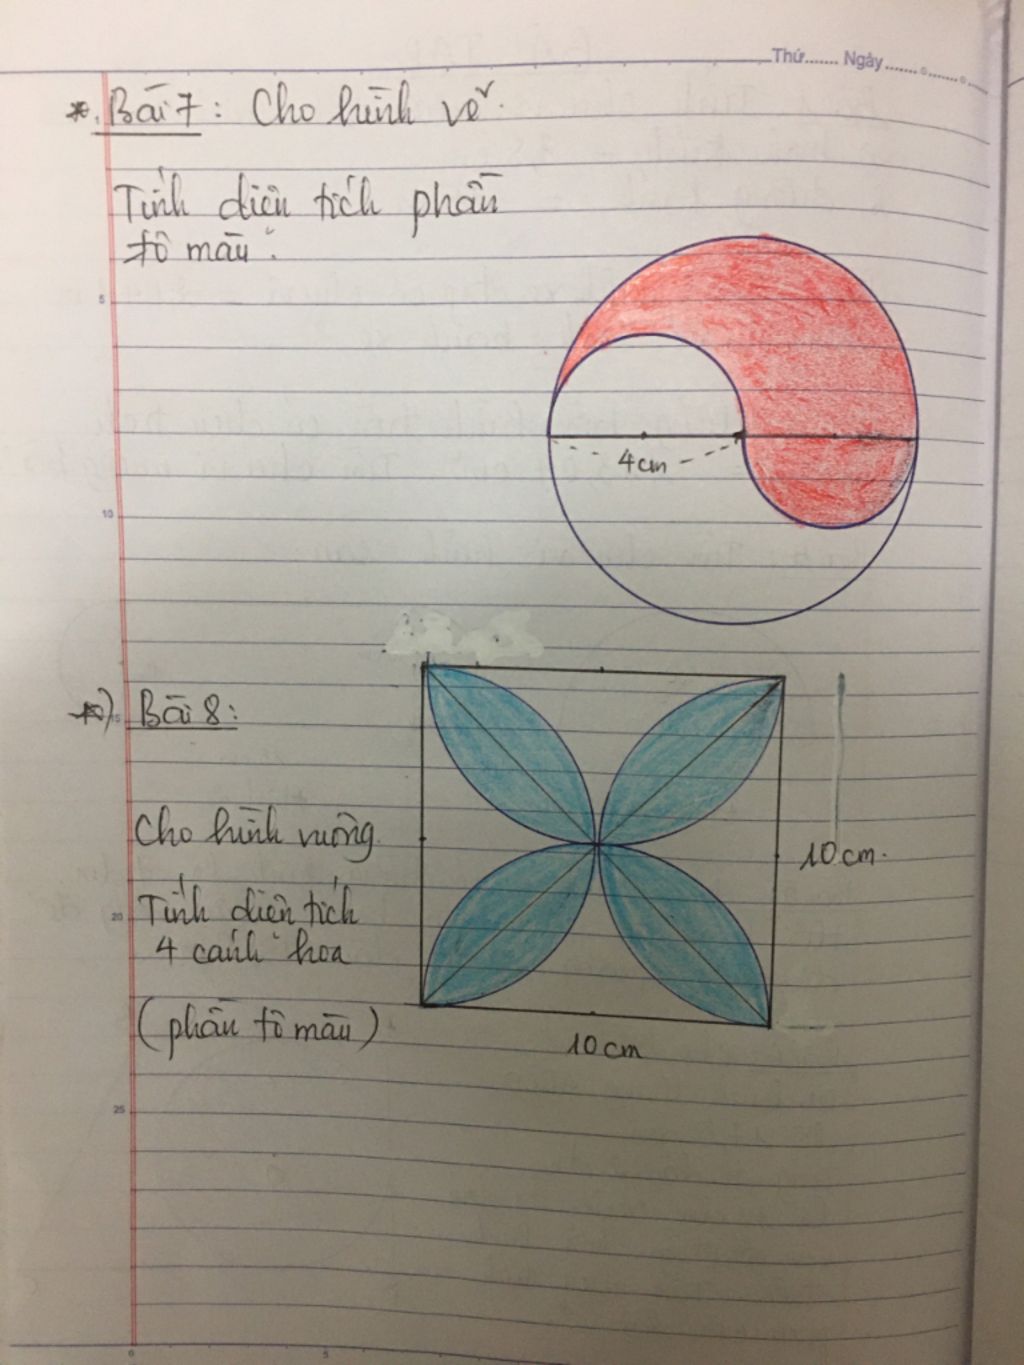 Thứ....... Ngày.......
*. Bài 7: Cho hình vẽ.
Tính diện tích phần
tô màu.
5
4cm
10
*) Bài 8:
15
Cho hình vuông.
10cm.
Tính diện tích
20
4 cánh hoa
(phần tô màu)
10cm
25
0 5